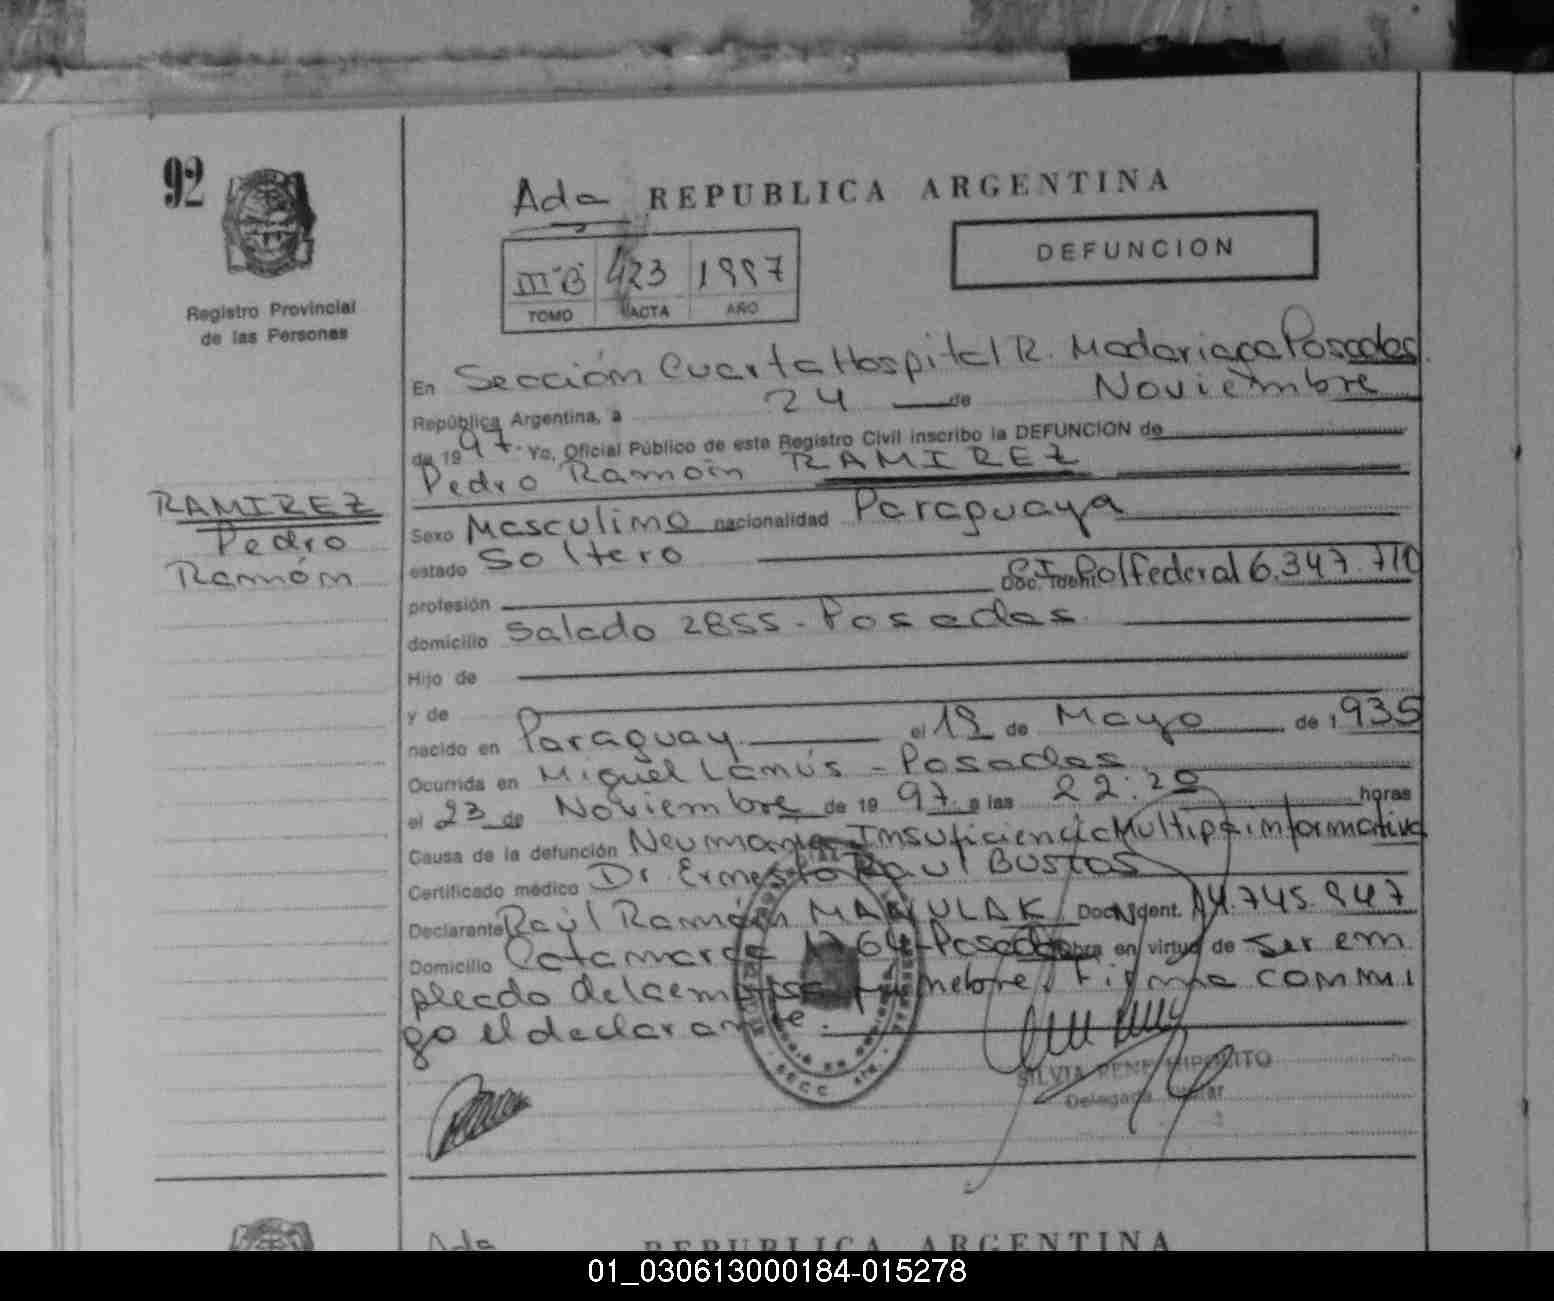 92
Registro Provincial
de las Personas
Ada REPUBLICA ARGENTINA
DEFUNCION
III "B" 423 1997
TOMO ACTA AÑO
En Sección Cuarta Hospital R. Madariaga Posadas.
República Argentina, a 24 de Noviembre
de 1997. Yo, Oficial Público de este Registro Civil inscribo la DEFUNCION de
Pedro Ramón RAMIREZ
RAMIREZ
Pedro
Ramón
Sexo Masculino nacionalidad Paraguaya
estado Soltero
profesión Doc. Ident. C.I. Pol Federal 6.347.710
domicilio Salado 2855 - Posadas
Hijo de
y de
nacido en Paraguay el 19 de Mayo de 1935
Ocurrida en Miguel Lanús - Posadas
el 23 de Noviembre de 1997. a las 22:20 horas
Causa de la defunción Neumonia Insuficiencia Multip
Certificado médico Dr. Ernesto Raul BUSTOS
Declarante Raúl Ramón MANULAK Doc. Ident. 14.745.947
Domicilio Catamarca Posadas obra en virtud de ser em
pleado de la empresa funebre. Firma conmi
go el declarante.
SILVIA RENE HIPOLITO
Delegada Titular
Ada
REPUBLICA ARGENTINA
01_030613000184-015278